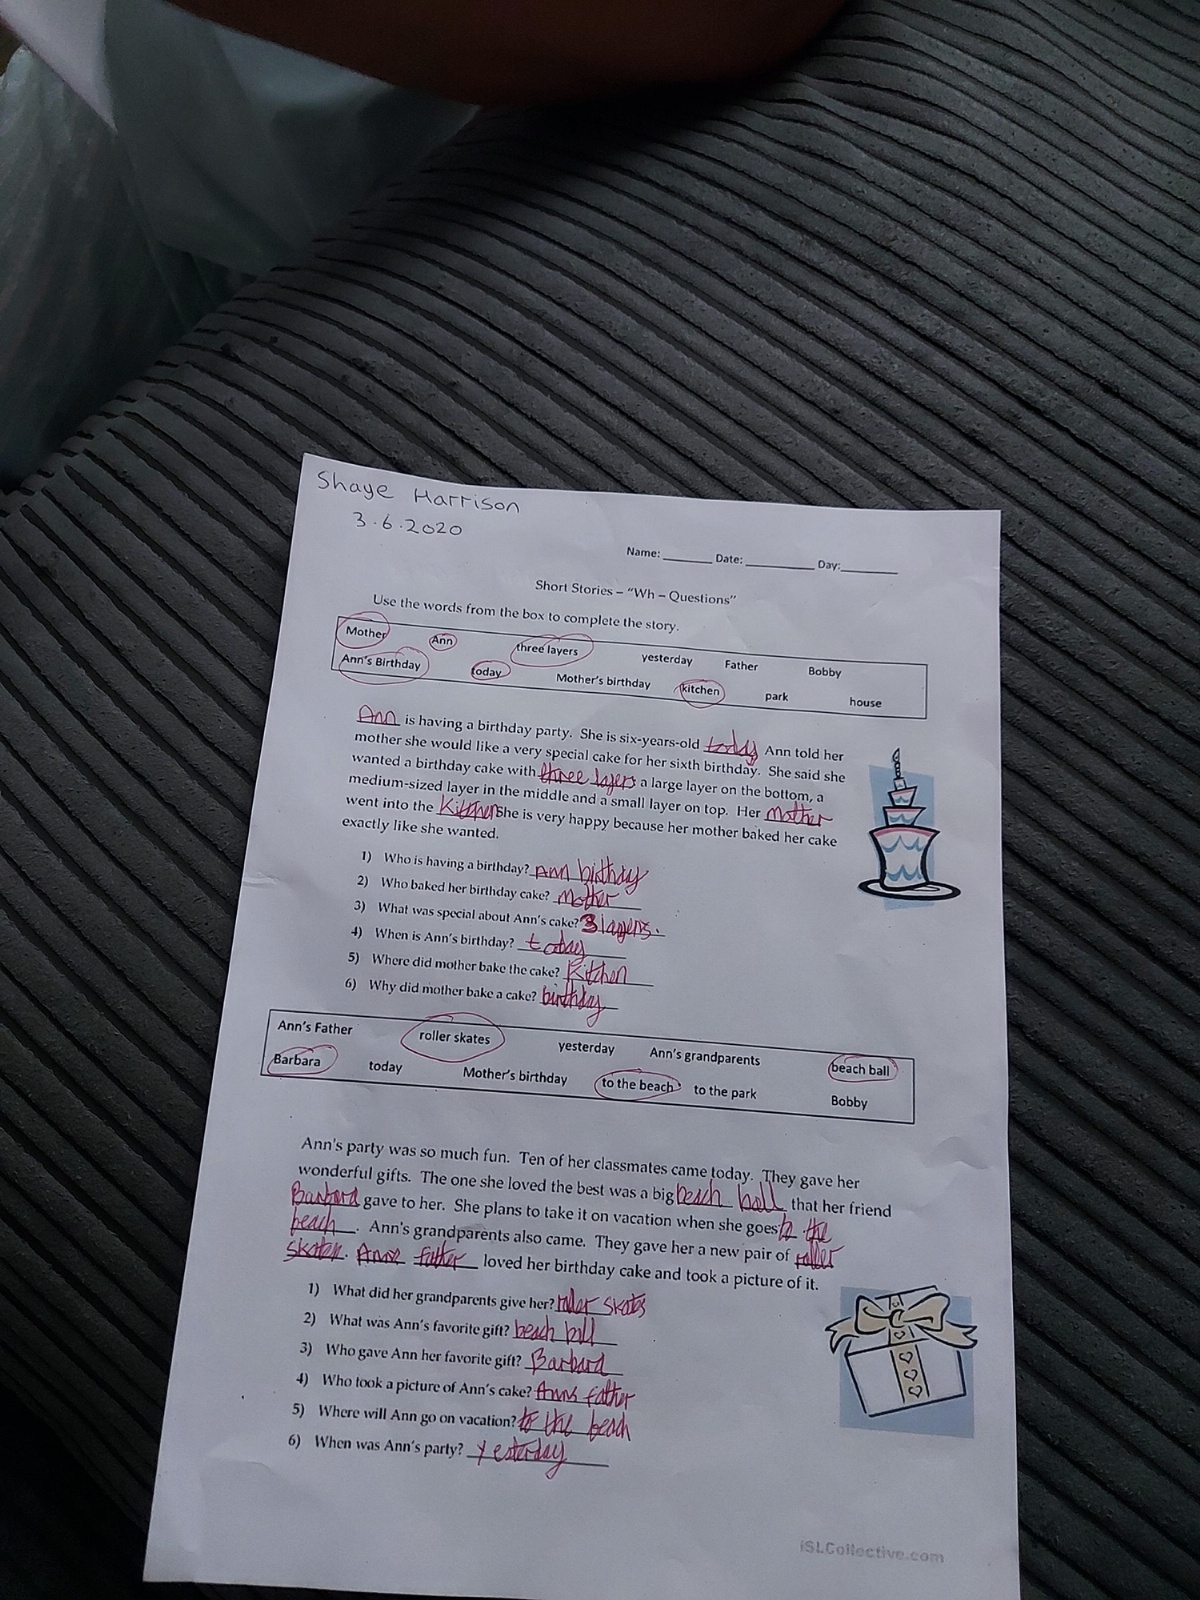 Shaye Harrison
3.6.2020
Name: ______ Date: ________ Day:_______
Short Stories – "Wh – Questions"
Use the words from the box to complete the story.
Mother Ann three layers yesterday Father Bobby
Ann's Birthday today Mother's birthday kitchen park house
Ann is having a birthday party. She is six-years-old today Ann told her
mother she would like a very special cake for her sixth birthday. She said she
wanted a birthday cake with three layers a large layer on the bottom, a
medium-sized layer in the middle and a small layer on top. Her mother
went into the Kitchen She is very happy because her mother baked her cake
exactly like she wanted.
1) Who is having a birthday? Ann birthday
2) Who baked her birthday cake? Mother
3) What was special about Ann's cake? 3 layers.
4) When is Ann's birthday? today
5) Where did mother bake the cake? Kitchen
6) Why did mother bake a cake? birthday
Ann's Father roller skates yesterday Ann's grandparents beach ball
Barbara today Mother's birthday to the beach to the park Bobby
Ann's party was so much fun. Ten of her classmates came today. They gave her
wonderful gifts. The one she loved the best was a big beach ball that her friend
Barbard gave to her. She plans to take it on vacation when she goes to the
beach. Ann's grandparents also came. They gave her a new pair of roller
skates. father loved her birthday cake and took a picture of it.
1) What did her grandparents give her? roller skates
2) What was Ann's favorite gift? beach ball
3) Who gave Ann her favorite gift? Barbard
4) Who took a picture of Ann's cake? Anns father
5) Where will Ann go on vacation? to the beach
6) When was Ann's party? Yesterday
iSLCollective.com